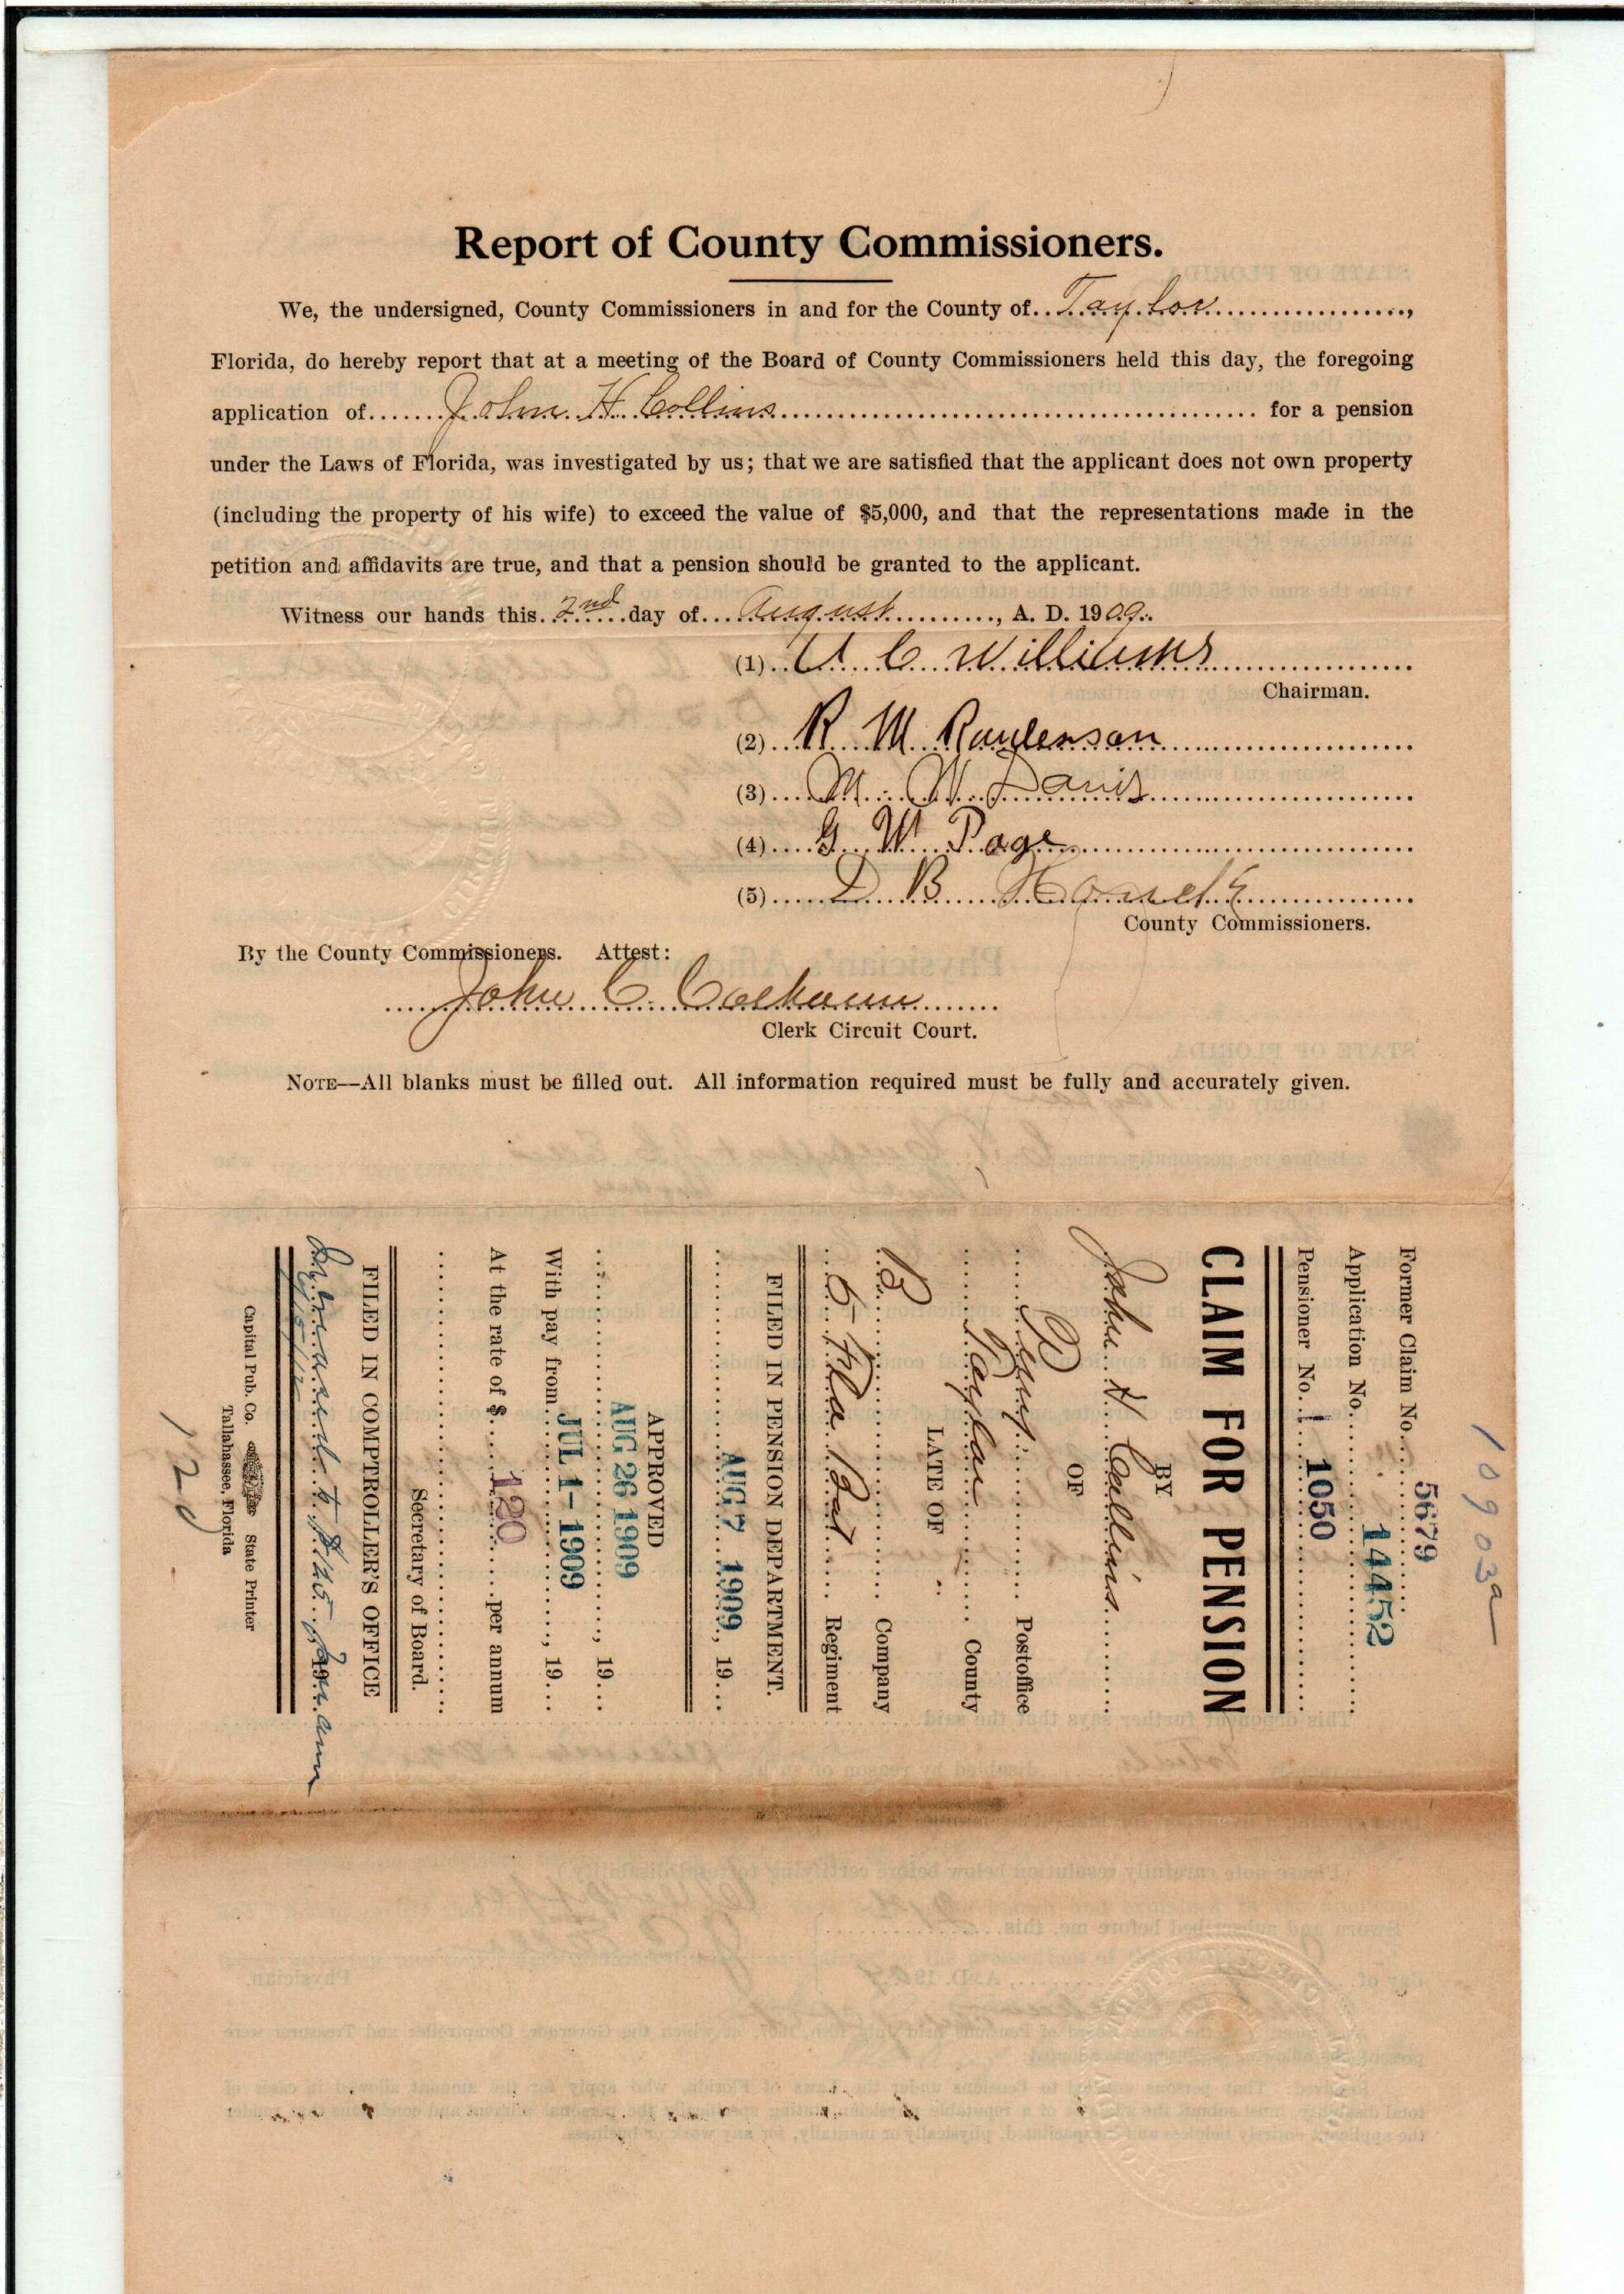 Report of County Commissioners.
We, the undersigned, County Commissioners in and for the County of..Taylor..................,
Florida, do hereby report that at a meeting of the Board of County Commissioners held this day, the foregoing
application of.......John H. Collins.......................................... for a pension
under the Laws of Florida, was investigated by us; that we are satisfied that the applicant does not own property
(including the property of his wife) to exceed the value of $5,000, and that the representations made in the
petition and affidavits are true, and that a pension should be granted to the applicant.
Witness our hands this..2nd..day of....August..........., A. D. 1909..
(1)..U C Williams..................
Chairman.
(2)...R. M. Raulerson......................
(3)....M. W. Davis......................
(4)....G. W. Page......................
(5)......D. B.
County Commissioners.
By the County Commissioners. Attest:
....John C. Calhoun.......
Clerk Circuit Court.
NOTE—All blanks must be filled out. All information required must be fully and accurately given.
10903a
Former Claim No. 5679
Application No. 14452
Pensioner No. 1 1050
CLAIM FOR PENSION
BY
John H. Collins
OF
Perry Postoffice
Taylor County
LATE OF
B Company
5 Fla Bat Regiment
FILED IN PENSION DEPARTMENT.
AUG 7 1909, 19...
APPROVED
AUG 26 1909, 19...
With pay from JUL 1-1909, 19...
At the rate of $ 120 per annum
Secretary of Board.
FILED IN COMPTROLLER'S OFFICE
Increased to $125 per ann
19
Capital Pub. Co. State Printer
Tallahassee, Florida
120